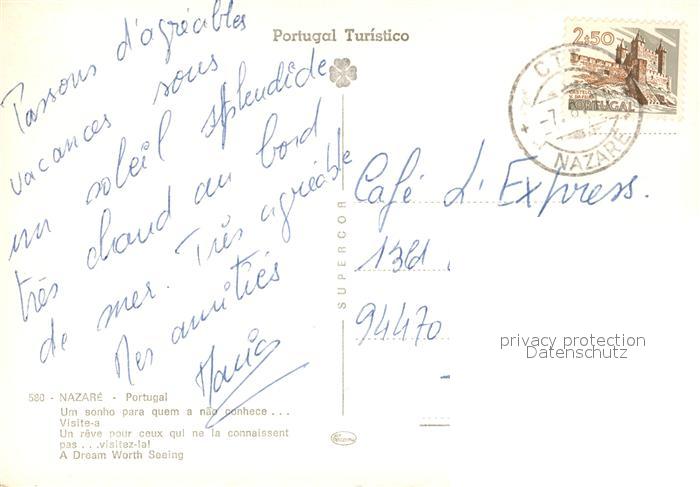 Portugal Turístico
Passons d'agréables
vacances sous
un soleil splendide
très chaud au bord
de mer. Très agréable
Mes amitiés
Maria
2$50
PORTUGAL
CT
-7.
NAZARÉ
SUPERCOR
Café L'Express.
13bd
94470
privacy protection
Datenschutz
580 - NAZARÉ - Portugal
Um sonho para quem a não conhece ...
Visite-a
Un rêve pour ceux qui ne la connaissent
pas ...visitez-la!
A Dream Worth Seeing